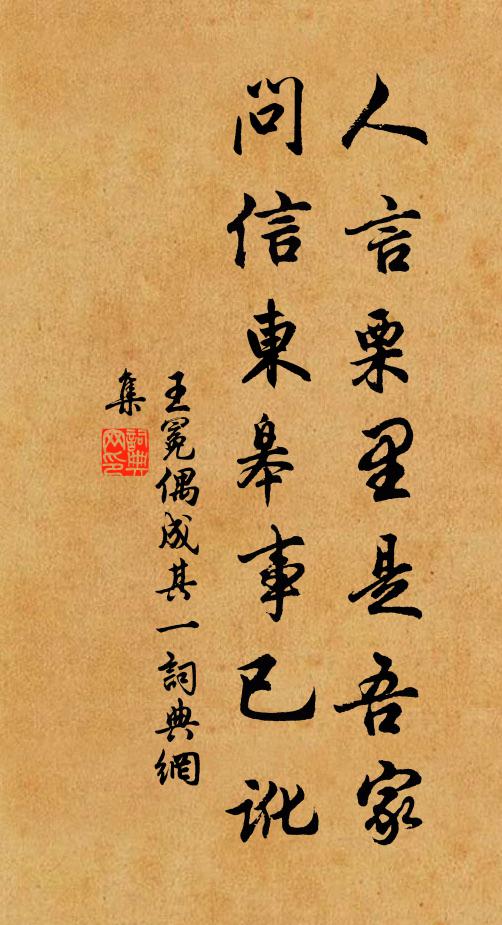 人言栗里是吾家
問信東皋事已訛
王冕偶成其一詞典網
集
詞典
網印